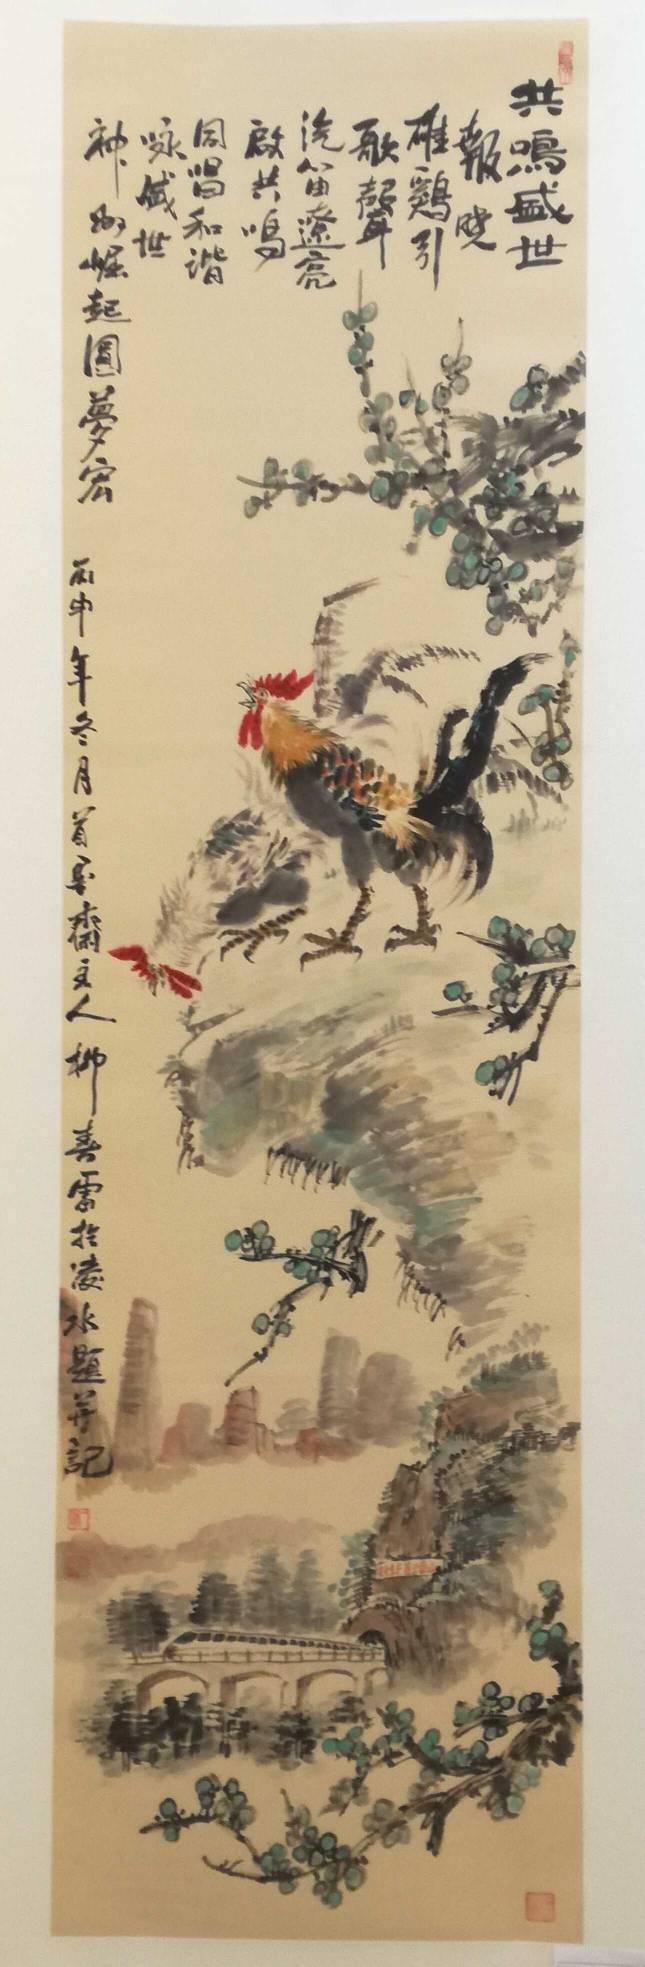 共鳴盛世
報曉
雄鷄引
歌聲
汽笛遼亮
啟共鳴
同唱和谐
咏盛世
神州崛起圓夢宏
丙申年冬月首墨齋主人柳春雷於凌水題并記